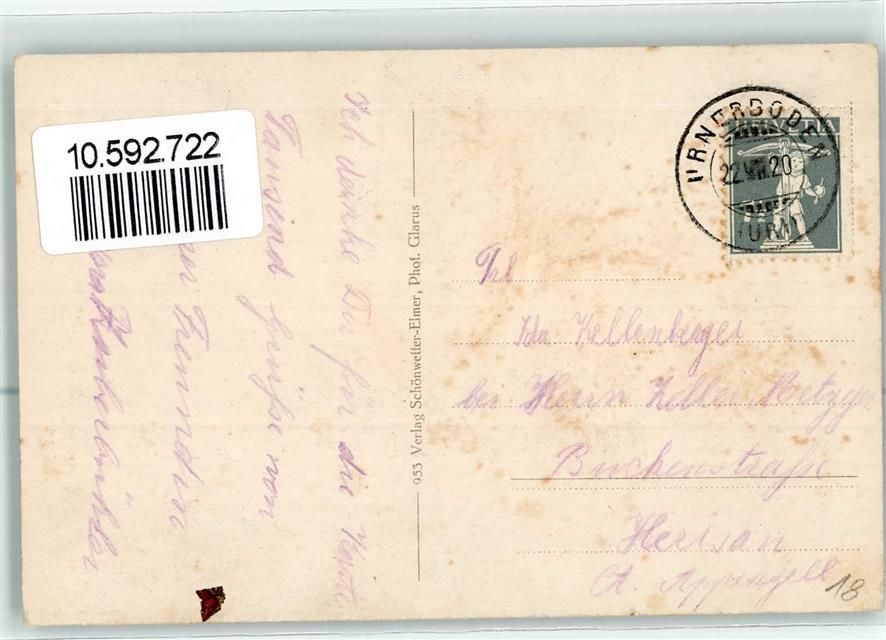 10.592.722
Ich danke Dir für die Karte
Tausend Grüsse von
Freundin
953 Verlag Schönwetter-Elmer, Phot. Glarus
URNERBODEN
22.VII.20
(URI)
HELVETIA
Frl
Ida Kellenberger
bei Herrn Keller Metzger
Buchenstrasse
Herisau
Ct. Appenzell
18